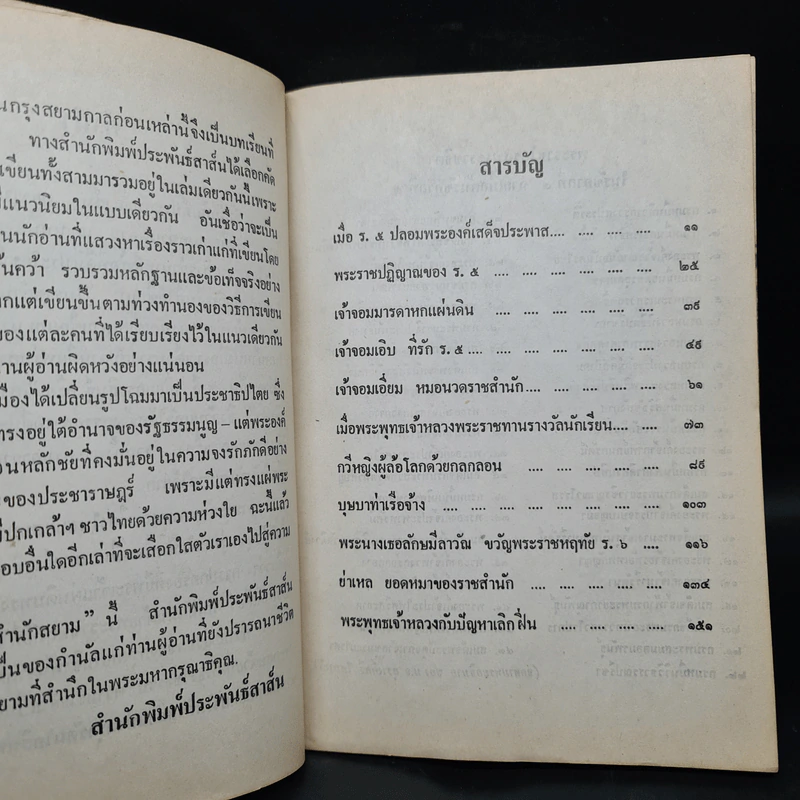 นกรุงสยามกาลก่อนเหล่านี้จึงเป็นบทเรียนที่
ทางสำนักพิมพ์ประพันธ์สาส์นได้เลือกคัด
เขียนทั้งสามมารวมอยู่ในเล่มเดียวกันนี้เพราะ
มีแนวนิยมในแบบเดียวกัน อันเชื่อว่าจะเป็น
นนักอ่านที่แสวงหาเรื่องราวเก่าแก่ที่เขียนโดย
ค้นคว้า รวบรวมหลักฐานและข้อเท็จจริงอย่าง
กแต่เขียนขึ้นตามท่วงทำนองของวิธีการเขียน
ของแต่ละคนที่ได้เรียบเรียงไว้ในแนวเดียวกัน
านผู้อ่านผิดหวังอย่างแน่นอน
เมืองได้เปลี่ยนรูปโฉมมาเป็นประชาธิปไตย ซึ่ง
ทรงอยู่ใต้อำนาจของรัฐธรรมนูญ – แต่พระองค์
อนหลักชัยที่คงมั่นอยู่ในความจงรักภักดีอย่าง
ของประชาราษฎร์ เพราะมีแต่ทรงแผ่พระ
ปกเกล้าฯ ชาวไทยด้วยความห่วงใย ฉะนี้แล้ว
อบอื่นใดอีกเล่าที่จะเสือกใสตัวเราเองไปสู่ความ
สำนักสยาม ” นี้ สำนักพิมพ์ประพันธ์สาส์น
เป็นของกำนัลแก่ท่านผู้อ่านที่ยังปรารถนาชีวิต
ยามที่สำนึกในพระมหากรุณาธิคุณ.
สำนักพิมพ์ประพันธ์สาส์น
สารบัญ
เมื่อ ร. ๕ ปลอมพระองค์เสด็จประพาส.... .... .... .... ๑๑
พระราชปฏิญาณของ ร. ๕ .... .... .... .... .... .... ๒๕
เจ้าจอมมารดาหกแผ่นดิน .... .... .... .... .... .... ๓๙
เจ้าจอมเอิบ ที่รัก ร. ๕ .... .... .... .... .... .... ๔๙
เจ้าจอมเอี่ยม หมอนวดราชสำนัก .... .... .... .... .... ๖๑
เมื่อพระพุทธเจ้าหลวงพระราชทานรางวัลนักเรียน.... .... ๗๓
กวีหญิงผู้ล้อโลกด้วยกลกลอน .... .... .... .... .... ๘๙
บุษบาท่าเรือจ้าง .... .... .... .... .... .... .... ๑๐๓
พระนางเธอลักษมีลาวัณ ขวัญพระราชหฤทัย ร. ๖ .... ๑๑๖
ย่าเหล ยอดหมาของราชสำนัก .... .... .... .... .... ๑๓๔
พระพุทธเจ้าหลวงกับปัญหาเลิกฝิ่น .... .... .... .... ๑๕๑